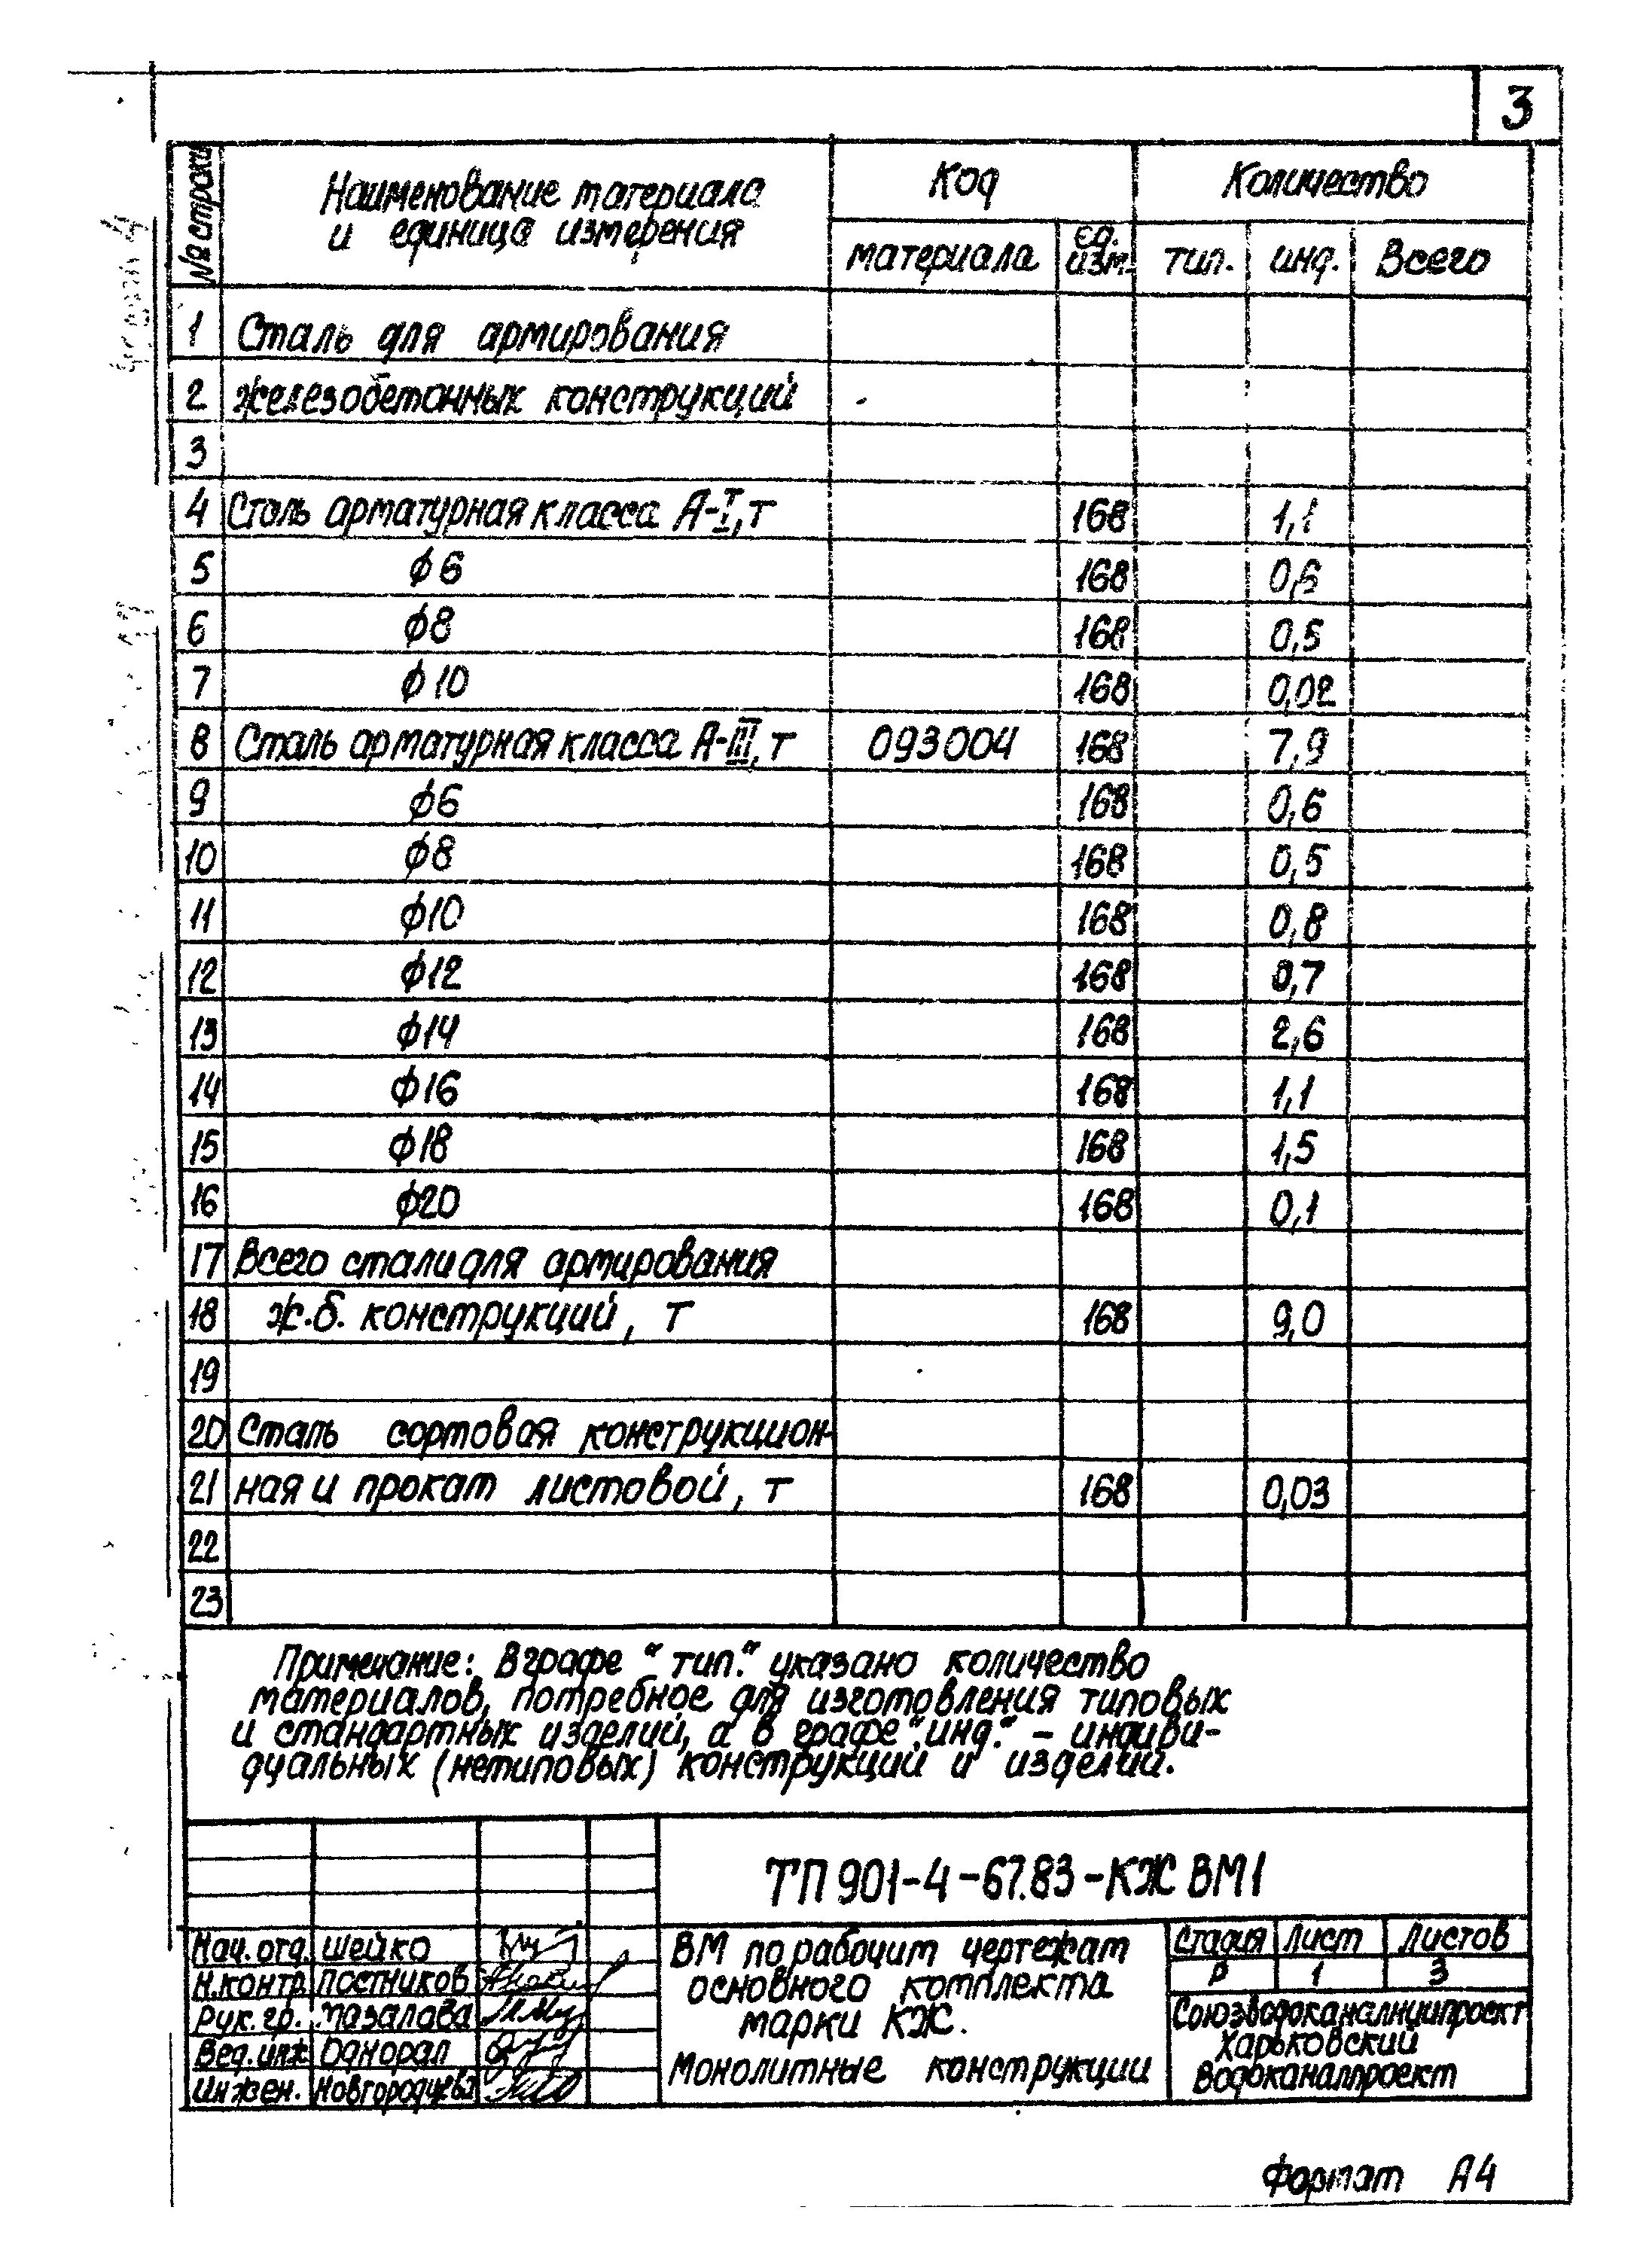 3
№ строки
Наименование материала
и единица измерения
Код
Количество
материала
ед. изм.
тип.
инд.
Всего
1 Сталь для армирования
2 железобетонных конструкций
3
4 Сталь арматурная класса А-I, т 168 1,1
5 ф6 168 0,6
6 ф8 168 0,5
7 ф10 168 0,02
8 Сталь арматурная класса А-III, т 093004 168 7,9
9 ф6 168 0,6
10 ф8 168 0,5
11 ф10 168 0,8
12 ф12 168 0,7
13 ф14 168 2,6
14 ф16 168 1,1
15 ф18 168 1,5
16 ф20 168 0,1
17 Всего стали для армирования
18 ж.б. конструкций, т 168 9,0
19
20 Сталь сортовая конструкцион-
21 ная и прокат листовой, т 168 0,03
22
23
Примечание: В графе "тип." указано количество
материалов, потребное для изготовления типовых
и стандартных изделий, а в графе "инд." - индиви-
дуальных (нетиповых) конструкций и изделий.
ТП 901-4-67.83-КЖ ВМ1
Нач. отд. Шейко
Н.контр. Постников
Рук. гр.
Вед. инж Однорал
Инжен.
ВМ по рабочим чертежам
основного комплекта
марки КЖ.
Монолитные конструкции
Стадия Лист Листов
Р 1 3
Союзводоканалниипроект
Харьковский
Водоканалпроект
Формат А4